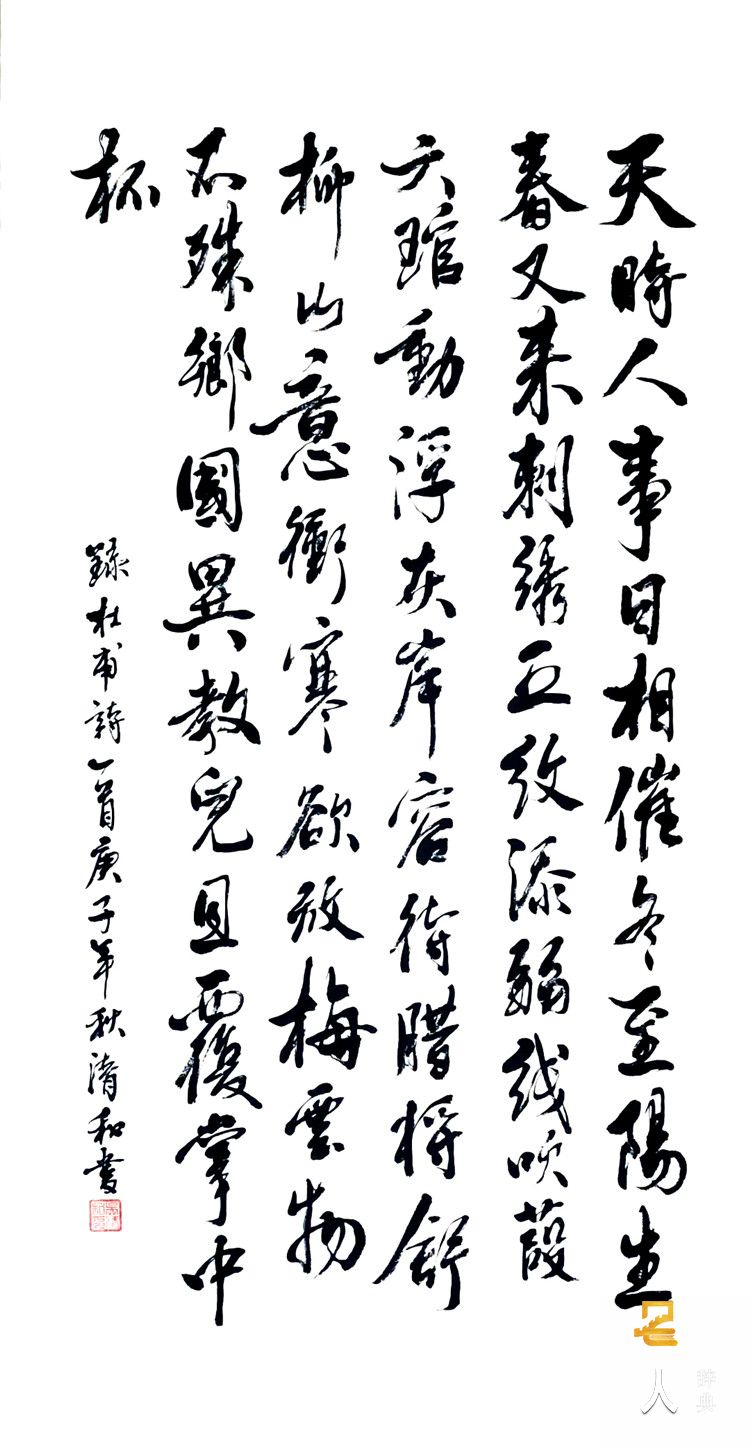 天時人事日相催冬至陽生
春又来刺绣五纹添弱线吹葭
六琯動浮灰岸容待腊将舒
柳山意衝寒欲放梅雲物
不殊鄉國異教兒且覆掌中
杯
錄杜甫詩一首庚子年秋清和書
人
辞典